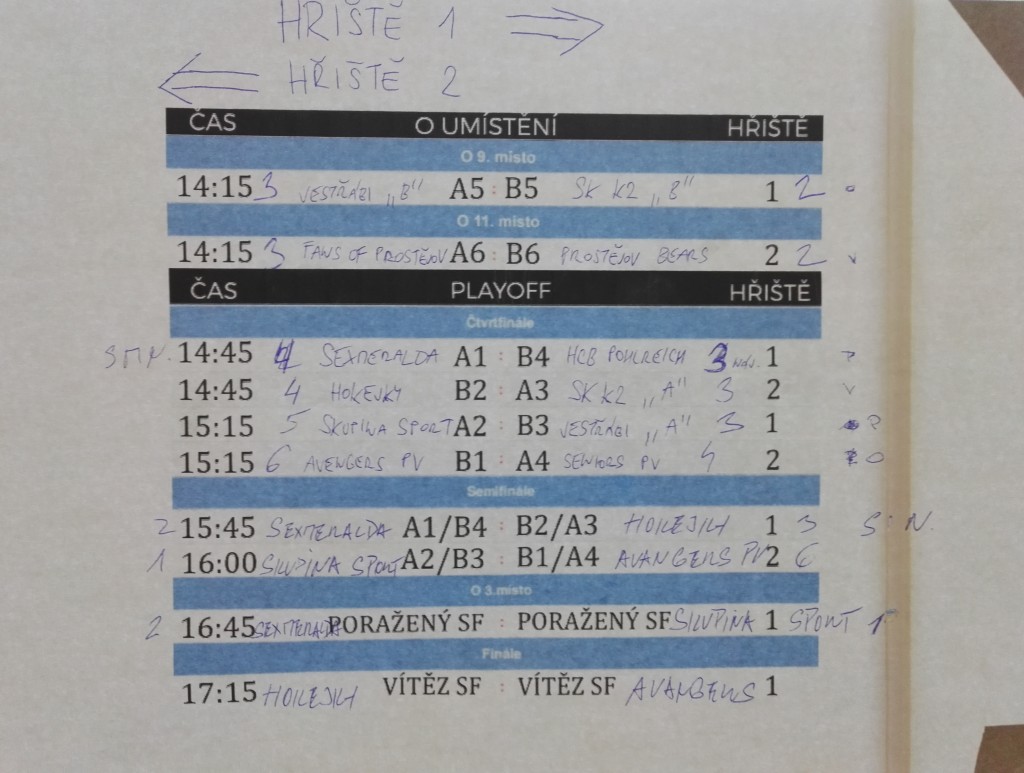 HŘIŠTĚ 1
HŘIŠTĚ 2
ČAS O UMÍSTĚNÍ HŘIŠTĚ
O 9. místo
14:15 3 VESTŘÁBI „B" A5 : B5 SK K2 „B" 1 2
O 11. místo
14:15 3 FANS OF PROSTĚJOV A6 : B6 PROSTĚJOV BEARS 2 2
ČAS PLAYOFF HŘIŠTĚ
Čtvrtfinále
14:45 4 SEXMERALDA A1 : B4 HCB POHLREICH 3 1
14:45 4 HOKEJKY B2 : A3 SK K2 „A" 3 2
15:15 5 SKUPINA SPORT A2 : B3 VESTŘÁBI „A" 3 1
15:15 6 AVENGERS PV B1 : A4 SENIORS PV 4 2
Semifinále
2 15:45 SEXMERALDA A1/B4 : B2/A3 1 3
1 16:00 SKUPINA SPORT A2/B3 : B1/A4 AVANGERS PV 2 6
O 3.místo
2 16:45 SEXMERALDA PORAŽENÝ SF : PORAŽENÝ SF SKUPINA 1 SPORT 1
Finále
17:15 VÍTĚZ SF : VÍTĚZ SF AVANGERS 1